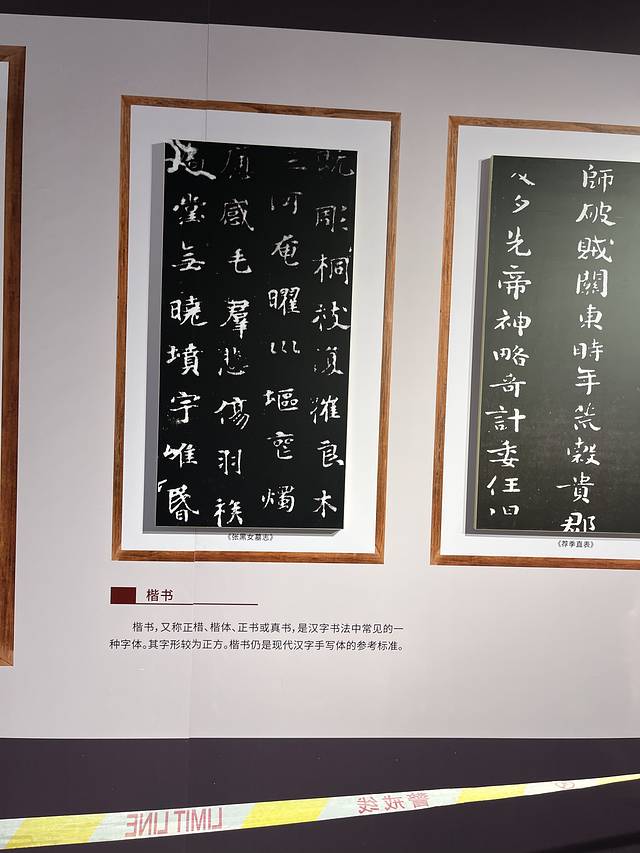 既彫桐枝復摧良木
三河奄曜巛塸喪燭
痛感毛羣悲傷羽族
堂無曉墳宇唯昏
《张黑女墓志》
師破賊關東時年荒穀貴郡
及夕先帝神略奇計委任
《荐季直表》
楷书
楷书，又称正楷、楷体、正书或真书，是汉字书法中常见的一
种字体。其字形较为正方。楷书仍是现代汉字手写体的参考标准。
LIMIT LINE
警戒线